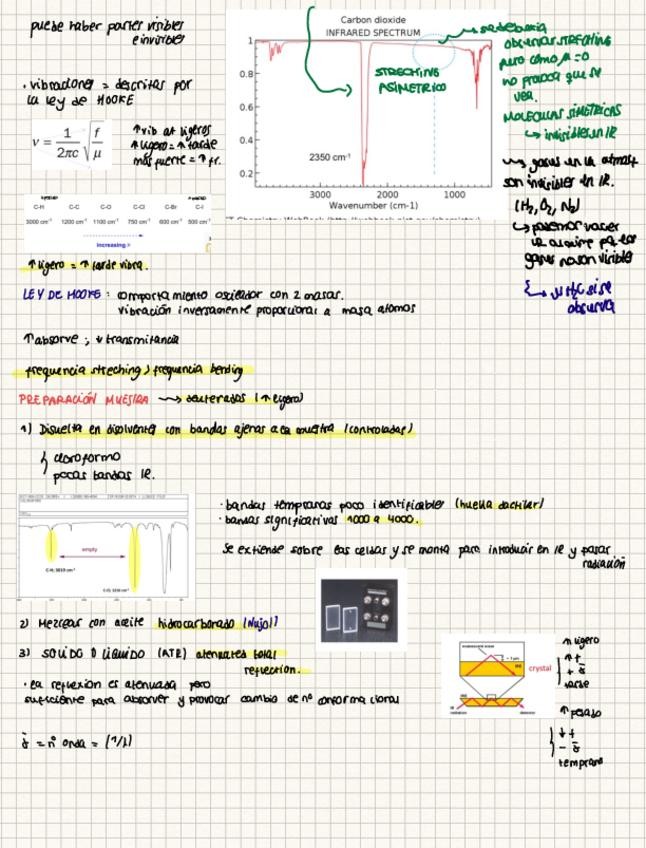 puede haber partes visibles
e invisibles
· vibraciones = descritas por
la ley de HOOKE
ν = 1/2πc √f/μ
↑ vib at ligeros
↑ ligero = ↑ tarde
más fuerte = ↑ fr.
Carbon dioxide
INFRARED SPECTRUM
1
0.8
0.6
0.4
0.2
2350 cm⁻¹
3000 2000 1000
Wavenumber (cm-1)
STRECHING
ASIMETRICO
→ se debería
observar STRECHING
pero como μ=0
no provoca que se
vea.
MOLECULAS SIMETRICAS
↳ invisibles en IR
gases en la atmosf
son invisibles en IR.
(H₂, O₂, N₂)
C-H C-C C-O C-Cl C-Br C-I
3000 cm⁻¹ 1200 cm⁻¹ 1100 cm⁻¹ 750 cm⁻¹ 600 cm⁻¹ 500 cm⁻¹
increasing
↑ ligero = ↑ tarde vibra.
LEY DE HOOKE : comportamiento oscilador con 2 masas.
vibración inversamente proporcional a masa atomos
↑ absorve ; ↓ transmitancia
frequencia streching > frequencia bending
PREPARACIÓN MUESTRA → deuterados (↑ ligero)
1) Disuelta en disolventes con bandas ajenas a la muestra (controladas)
cloroformo
pocas bandas IR.
empty
· bandas tempranas poco identificables (huella dactilar)
· bandas significativas 1000 a 4000.
Se extiende sobre las celdas y se monta para introducir en IR y pasar
radiación
2) Mezclar con aceite hidrocarbonado (Nujol)
3) SOLIDO O LIQUIDO (ATR) atenuated total
reflection.
· la reflexión es atenuada pero
suficiente para absorver y provocar cambio de nº conformacional
crystal
↑ ligero
↑ f
+ ν̄
tarde
↑ pesado
↓ f
- ν̄
temprano
ν̄ = nº onda = (1/λ)